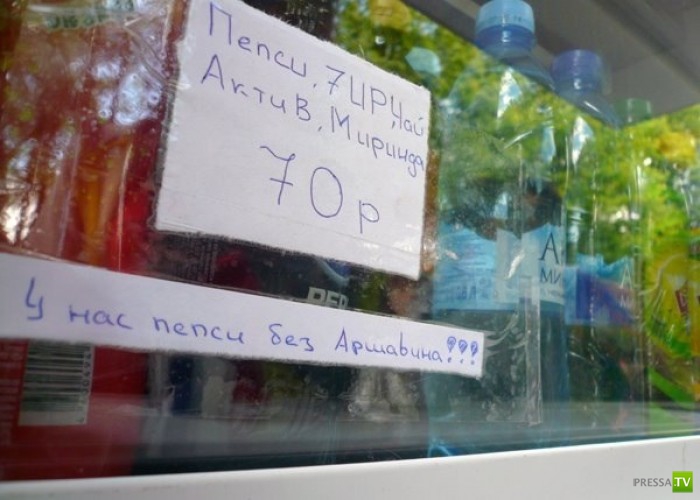 Пепси, 7UP, Чай
Актив, Миринда
70р
У нас пепси без Аршавина!!!
PRESSA.TV